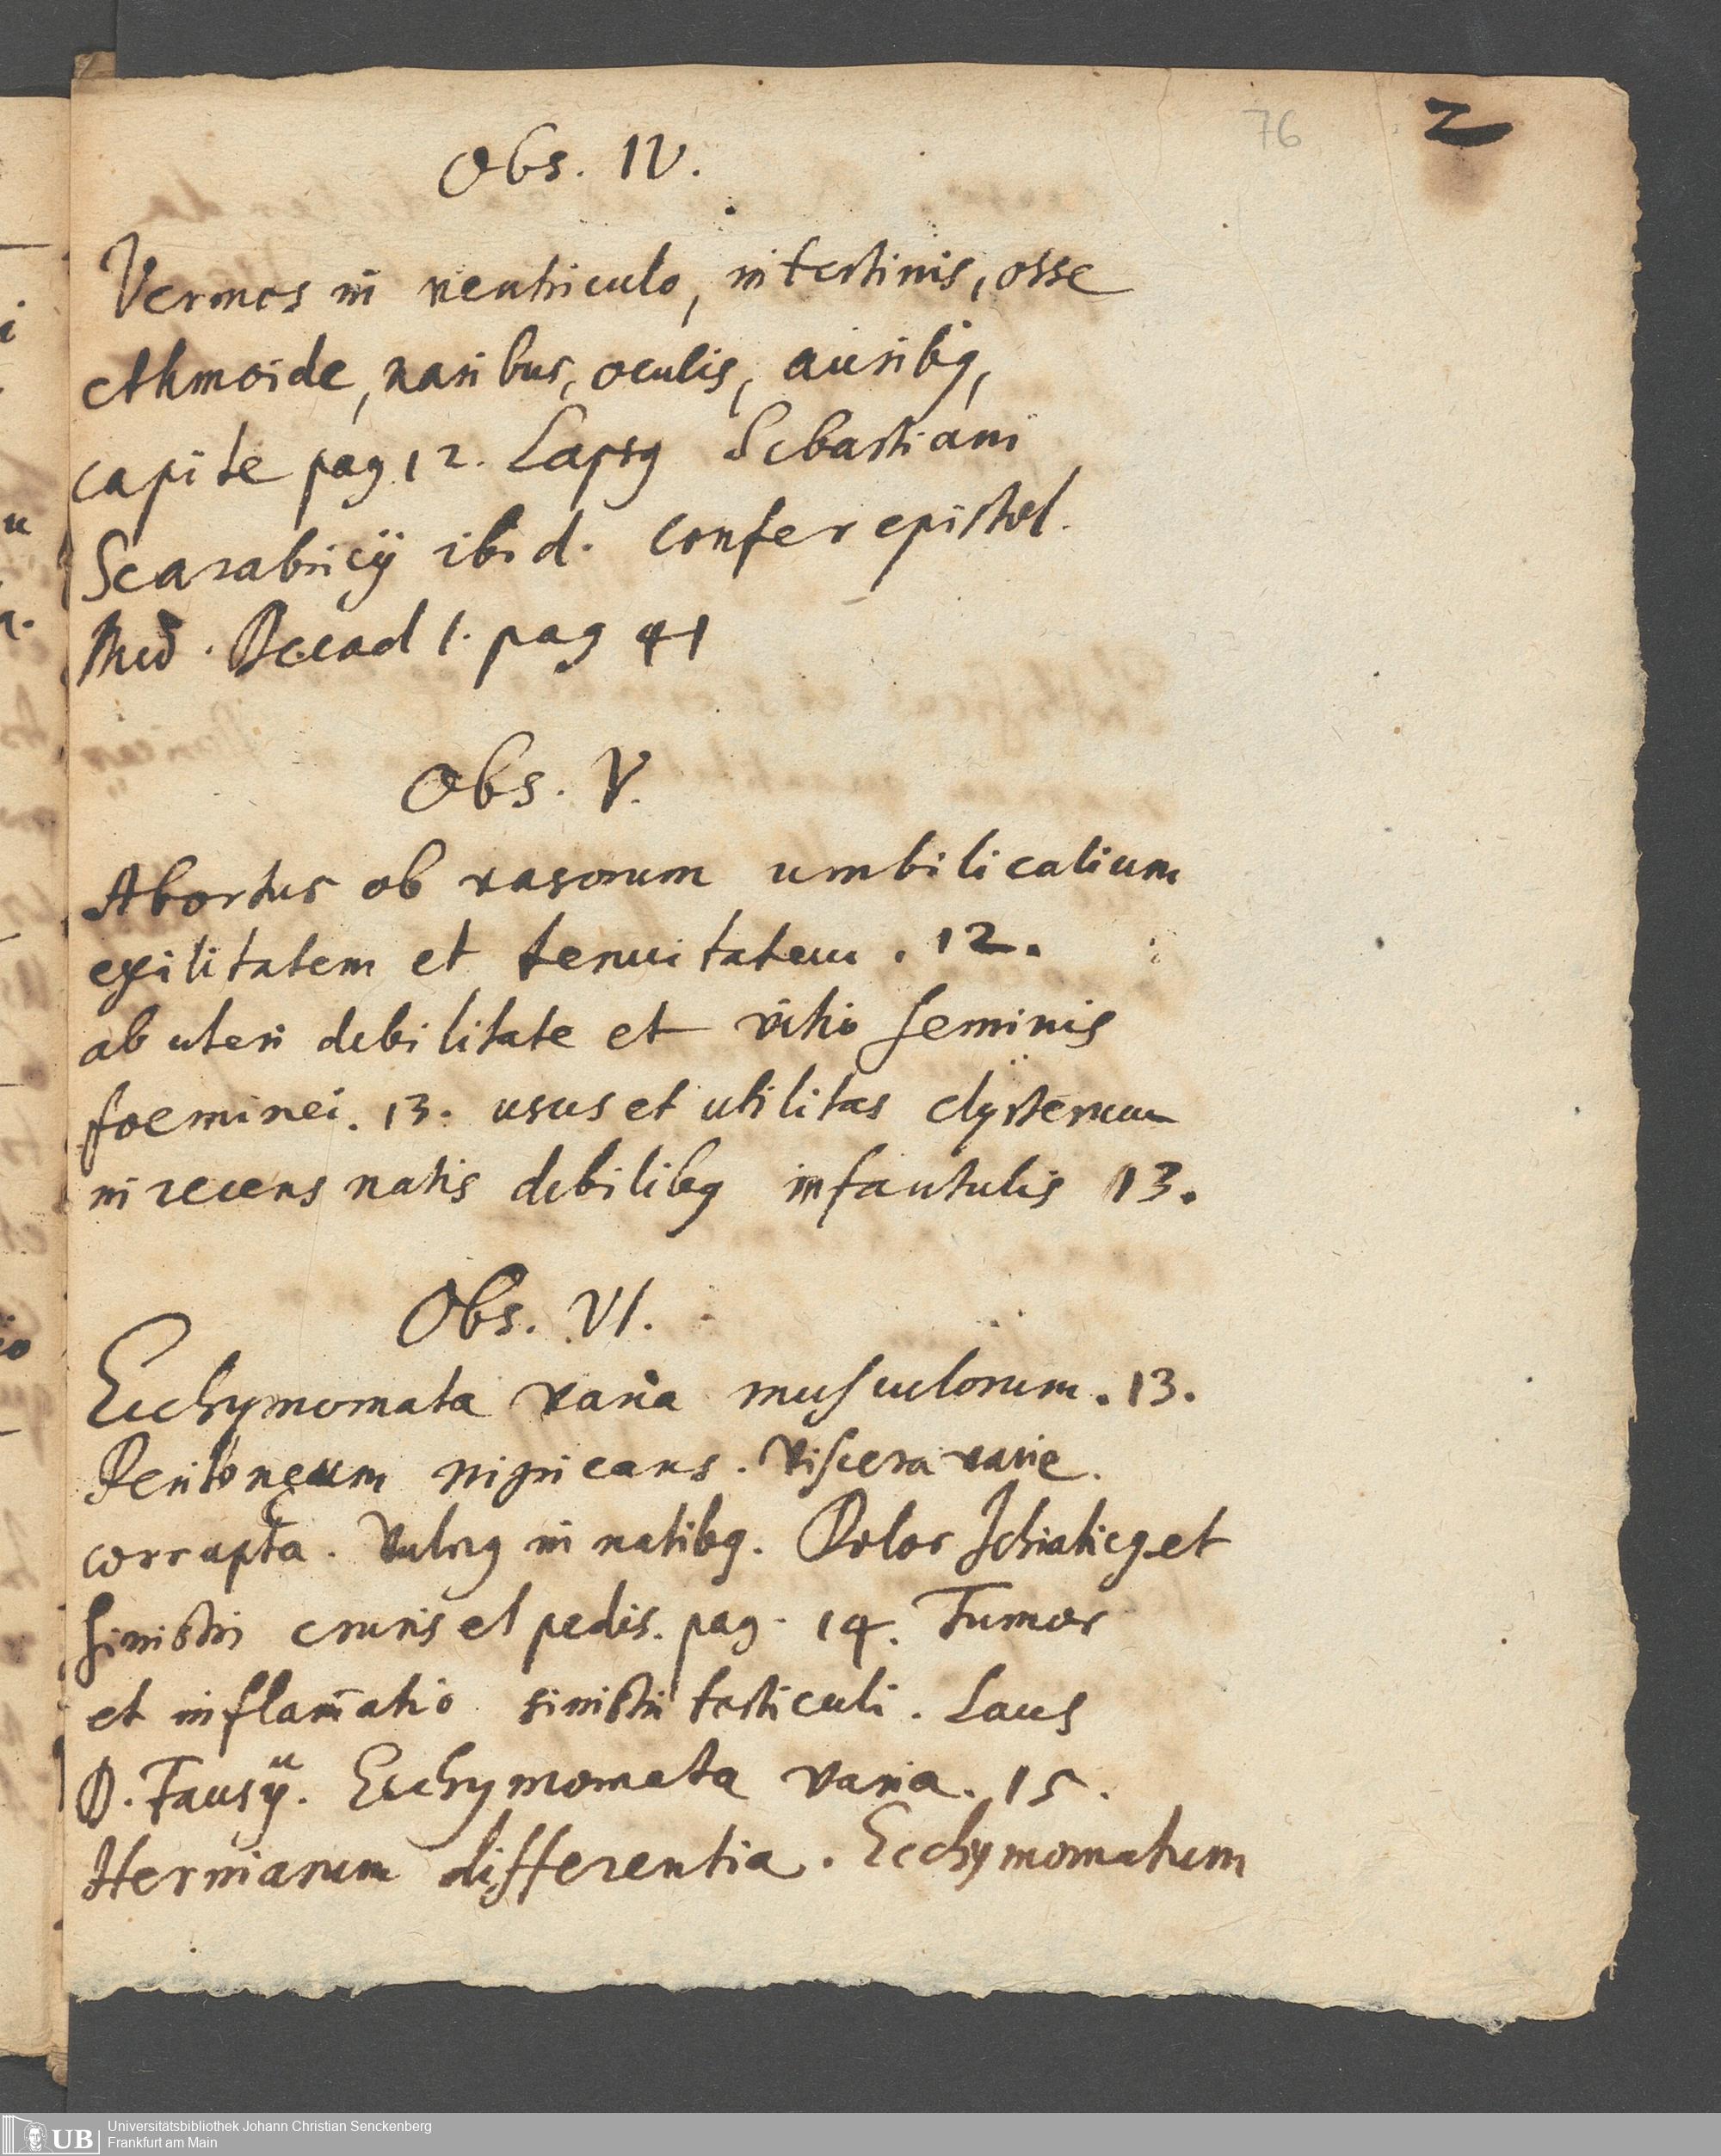 76 2
Obs. IV.
Vermes in ventriculo, intestinis, osse
ethmoide, naribus, oculis, auribq,
capite pag 12. Lapsq Sebastiani
Scarabicij ibid. confer epistol.
Med. Decad 1. pag 41
Obs. V.
Abortus ob vasorum umbilicalium
exilitatem et tenuitatem. 12.
ab uteri debilitate et vitio seminis
foeminei. 13. usus et utilitas clÿsterum
in recens natis debilibq infantulis 13.
Obs. VI.
Ecchymomata varia musculorum. 13.
Peritonęum nigricans. Viscera varie.
corrupta. Vulnq in natibq. Dolor Ischiaticq et
sinistri cruris et pedis. pag. 14. Tumor
et inflam̄atio sinistri testiculi. Laus
D. Fausÿ. Ecchymomata varia. 15.
Herniarum differentia. Ecchymomatum
UB Universitätsbibliothek Johann Christian Senckenberg
Frankfurt am Main